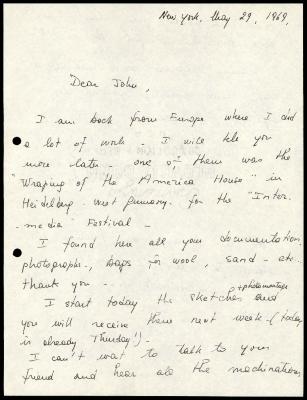 New York, May 29, 1969,
Dear John,
I am back from Europe where I did
a lot of work - I will tele you
more later - one of them was the
"Wraping of the America House" in
Heidelberg - met finnary. for the "Inter
- media" Festival -
I found here all your documentation,
photographs., bags for wool, sand - etc..
thank you -
I start today the sketches and
+ photomontage
you will receive them next week - (today
is already Thursday!) -
I can't wait to talk to your
friend and hear all the machinations